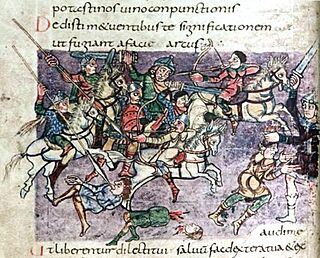 potasti nos uino conpunctionis
Dedisti metuentibus te significationem
ut fugiant a facie arcus
audi me
Ut liberentur dilecti tui saluum fac dextera tua & ex